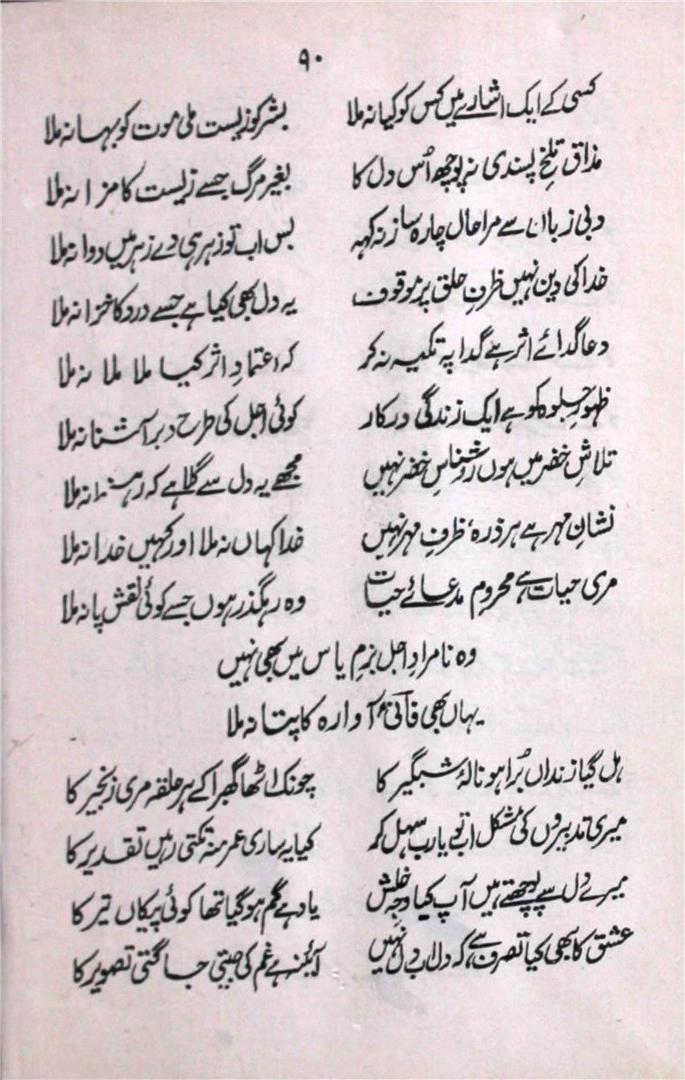 ۹۰
کسی کے ایک اشارے میں کس کو کیا نہ ملا بشر کو زیست ملی موت کو بہانہ ملا
مذاق تلخ پسندی نہ پوچھ اُس دل کا بغیر مرگ جسے زیست کا مزا نہ ملا
دبی زباں سے مرا حال چارہ ساز نہ کہہ بس اب تو زہر ہی دے زہر میں دوا نہ ملا
خدا کی دین نہیں ظرفِ خلق پر موقوف یہ دل بھی کیا ہے جسے درد کا خزانہ ملا
دعا گدائے اثر ہے گدا پہ تکیہ نہ کر کہ اعتمادِ اثر کیا ملا ملا نہ ملا
ظہورِ جلوہ کو ہے ایک زندگی درکار کوئی اجل کی طرح دیر آشنا نہ ملا
تلاشِ خضر میں ہوں روشناسِ خضر نہیں مجھے یہ دل سے گلا ہے کہ رہنما نہ ملا
نشانِ مہر ہے ہر ذرہ، ظرفِ مہر نہیں خدا کہاں نہ ملا اور کہیں خدا نہ ملا
مری حیات ہے محرومِ مدعائے حیات وہ رہگذر ہوں جسے کوئی نقشِ پا نہ ملا
وہ نامرادِ اجل بزمِ یاس میں بھی نہیں
یہاں بھی فانیؔ آوارہ کا پتا نہ ملا
ہل گیا زنداں بُرا ہو نالۂ شبگیر کا چونک اٹھا گھبرا کے ہر حلقہ مری زنجیر کا
میری تدبیروں کی مشکل اب تو یارب سہل کر کیا یہ ساری عمر منہ تکتی رہیں تقدیر کا
میرے دل سے پوچھتے ہیں آپ کیا وجہِ خلش یاد ہے گم ہو گیا تھا کوئی پیکاں تیر کا
عشق کا بھی کیا تصرف ہے، کہ دل اب دل نہیں آئنہ ہے غم کی جیتی جاگتی تصویر کا